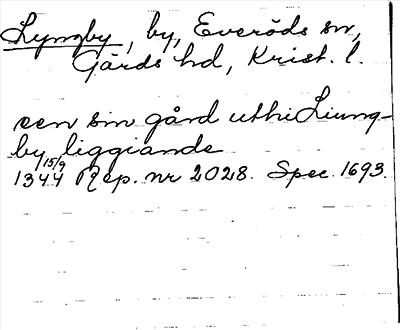 Lyngby, by, Everöds sn,
Gärds hd, Krist. l.
een sin gård uthi Liung-
by liggiande
1344 15/9 Rep. nr 2028. Spec. 1693.